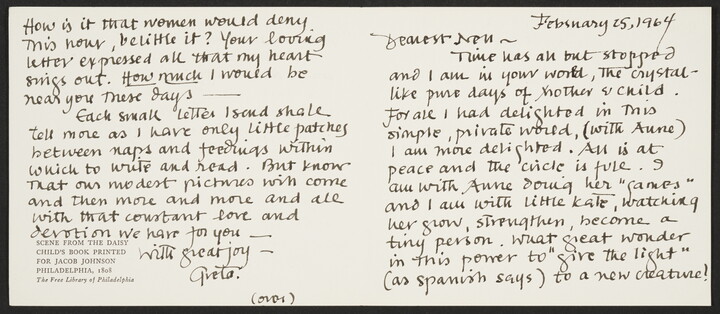 February 25, 1964
Dearest Nell ~
Time has all but stopped
and I am in your world, the crystal-
like pure days of Mother & Child.
For all I had delighted in this
simple, private world, (with Anne)
I am more delighted. All is at
peace and the circle is full. I
am with Anne doing her "games"
and I am with little Kate, watching
her grow, strengthen, become a
tiny person. What great wonder
in this power to "give the light"
(as spanish says) to a new creature!
How is it that women would deny
this hour, belittle it? Your loving
letter expressed all that my heart
sings out. How much I would be
near you these days —
Each small letter I send shall
tell more as I have only little patches
between naps and feedings within
which to write and read. But know
that our modest pictures will come
and then more and more and all
with that constant love and
devotion we have for you —
with great joy —
Greta.
(over)
SCENE FROM THE DAISY
CHILD'S BOOK PRINTED
FOR JACOB JOHNSON
PHILADELPHIA, 1808
The Free Library of Philadelphia